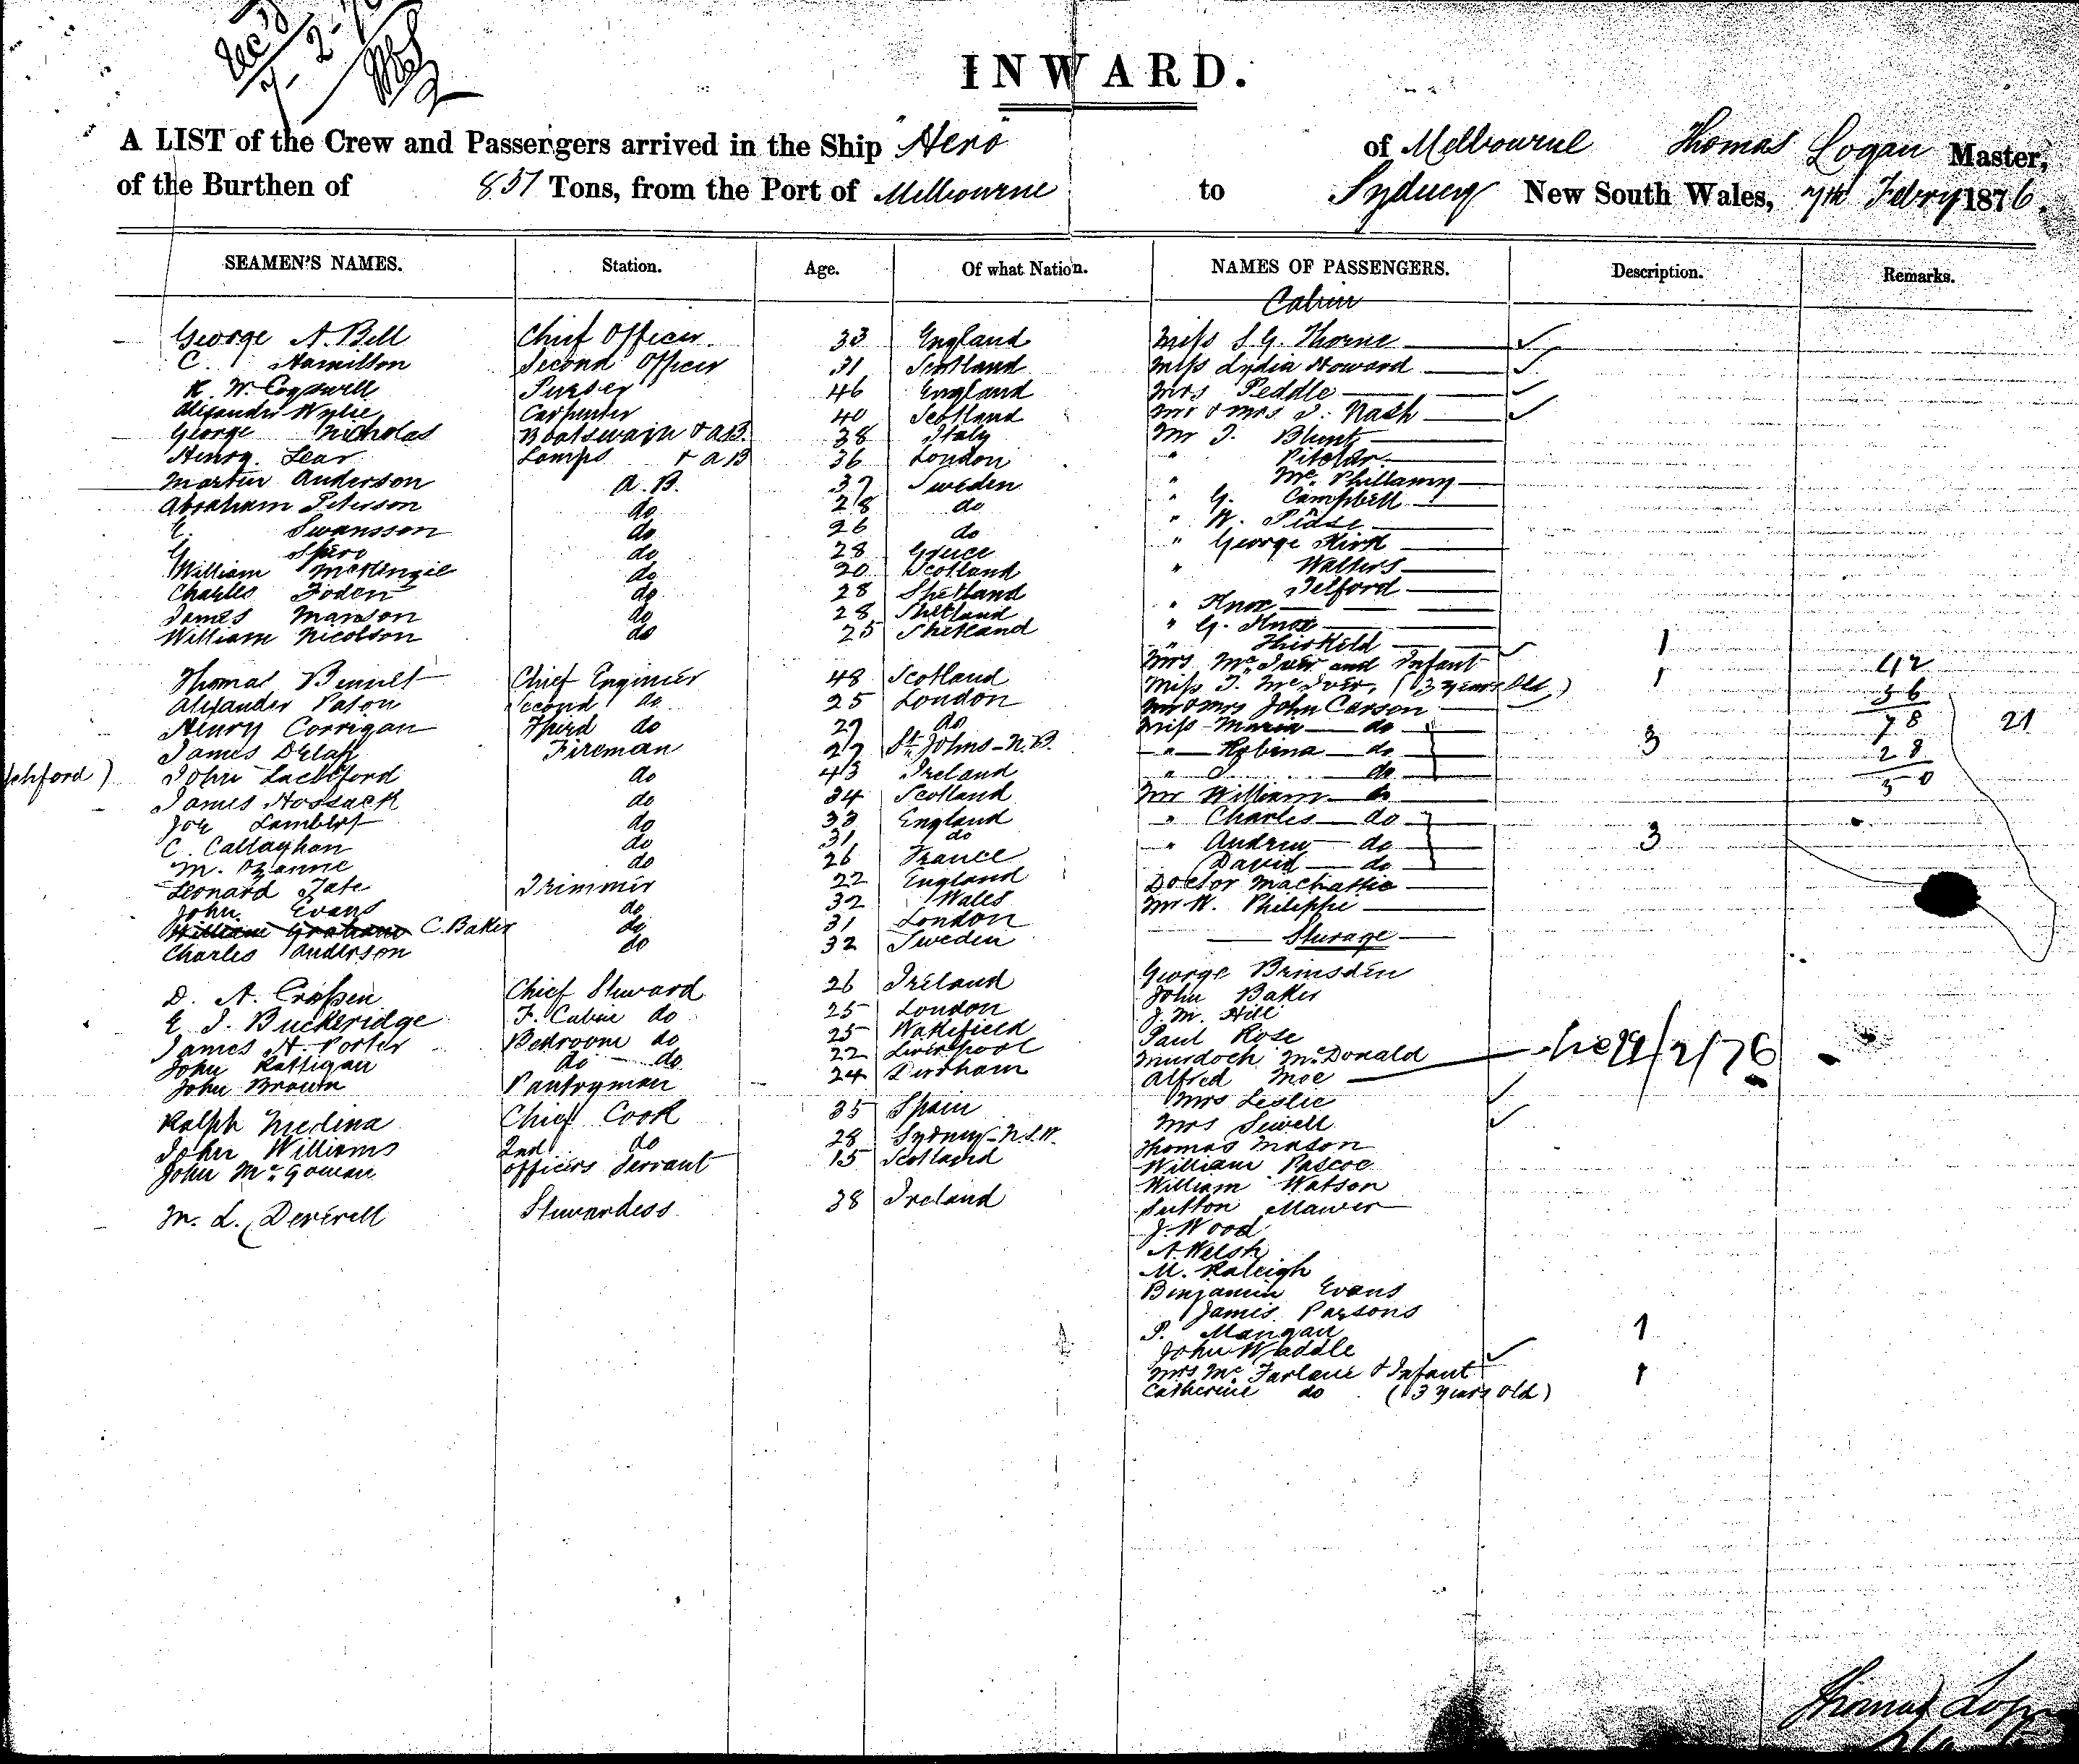 INWARD.
A LIST of the Crew and Passengers arrived in the Ship "Hero" of Melbourne Thomas Logan Master,
of the Burthen of 851 Tons, from the Port of Melbourne to Sydney New South Wales, 7th Febry 1876.
SEAMEN'S NAMES. Station. Age. Of what Nation. NAMES OF PASSENGERS. Description. Remarks.
Cabin
George A. Bell Chief Officer 33 England Miss S. G. Thorne
C. Hamilton Second Officer 31 Scotland Miss Lydia Howard
R. W. Cogswell Purser 46 England Mrs Peddle
Alexander Wylie Carpenter 40 Scotland Mr & Mrs J. Nash
George Nicholas Boatswain & AB. 38 Italy Mr J. Blunt
Henry Lear Lamps & AB 36 London "
Martin Anderson A.B. 37 Sweden " Mc Phillamy
Abraham Peterson do 28 do " G. Campbell
E. Swansson do 26 do " W. Pidse
G. Spiro do 28 Greece " George Kirk
William McKenzie do 20 Scotland " Walters
Charles Foden do 28 Shetland Telford
James Manson do 28 Shetland " Knox
William Nicolson do 25 Shetland " G. Knox
" Thirkeld
Mrs Mc Iver and Infant 1
Thomas Bennet Chief Engineer 48 Scotland Miss J. Mc Iver, (13 years Old) 1 42
Alexander Paton Second do 25 London Mr & Mrs John Carson 36
Henry Corrigan Third do 27 do Miss Maria do 78 21
James Delap Fireman 27 St Johns - N.B. " Robina do 3 28
chford) John Lachford do 43 Ireland " J. do 50
James Hossack do 34 Scotland Mr William do
Joe Lambert do 33 England " Charles do
C. Callaghan do 31 do " Andrew do 3
M. Ozanne do 26 France David do
Leonard Tate Trimmer 22 England Doctor Machattie
John Evans do 32 Wales Mr W. Philippe
William Graham C. Baker do 31 London
Charles Anderson do 32 Sweden Sterage
D. A. Crossen Chief Steward 26 Ireland George Brinsden
E. J. Buckeridge F. Cabin do 25 London John Baker
James H. Porter Bedroom do 25 Wakefield J. M. Hill
John Rattigan do do 22 Liverpool Paul Rose
John Brown Pantryman 24 Durham Murdoch McDonald
Alfred Moe
Ralph Medina Chief Cook 35 Spain Mrs Leslie
John Williams 2nd do 28 Sydney - N.S.W. Mrs Sewell
John McGowan Officers Servant 15 Scotland Thomas Mason
William Pascoe
M. L. Deverell Stewardess 38 Ireland William Watson
Sutton Mawer
J. Wood
A. Welsh
M. Raleigh
Benjamin Evans
James Parsons
P. Mangan 1
John Waddle
Mrs Mc Farlane & Infant 1
Catherine do (13 years old)
Thomas Logan